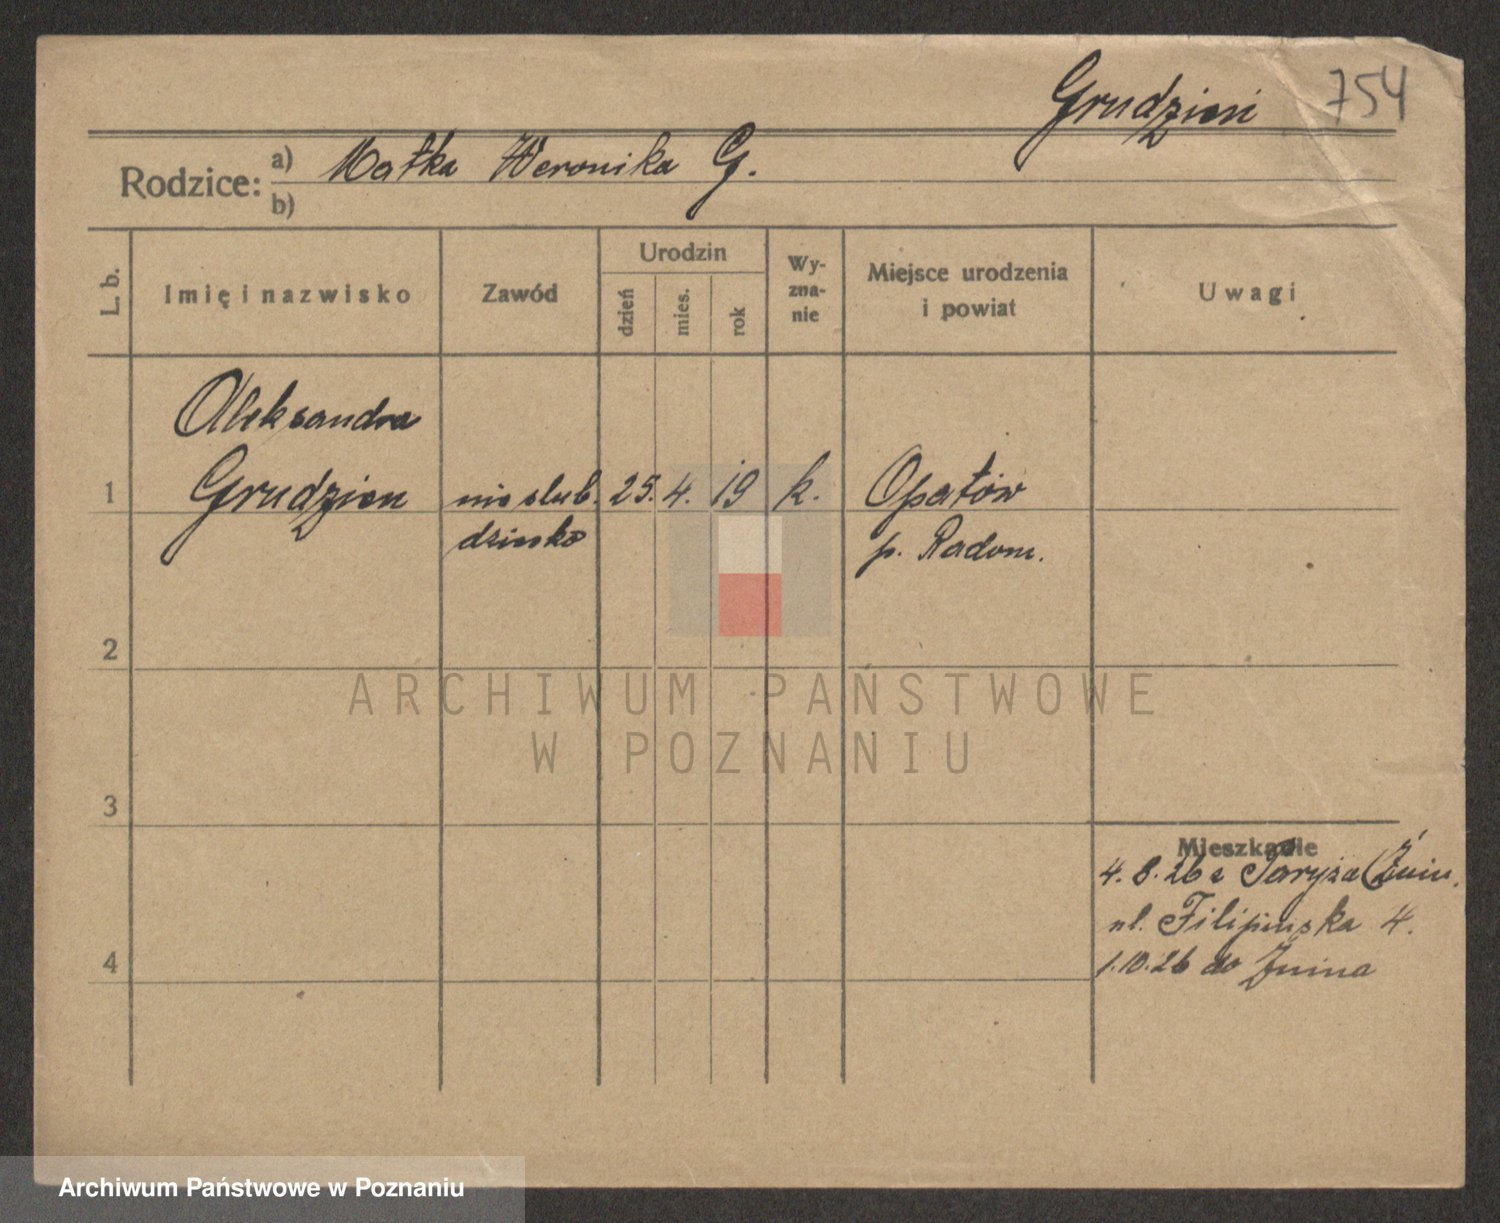 Grudzień 754
Rodzice: a) Matka Weronika G.
b)
L. b.
Imię i nazwisko
Zawód
Urodzin
dzień
mies.
rok
Wy-
zna-
nie
Miejsce urodzenia
i powiat
Uwagi
Aleksandra
1 Grudzien nieslub. 25. 4. 19 k. Opatów
dziecko p. Radom.
2
3
4
Mieszkanie
4. 8. 26 z Paryża (Żnin.
ul. Filipińska 4.
1.10.26 do Żnina
ARCHIWUM PAŃSTWOWE
W POZNANIU
Archiwum Państwowe w Poznaniu